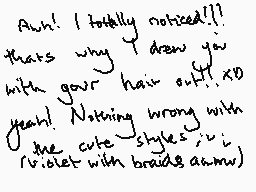 Awh! I totally noticed!!!
thats why I drew you
with your hair out!! XD
yeah! Nothing wrong with
the cute styles ;u;
(violet with braids aamw)